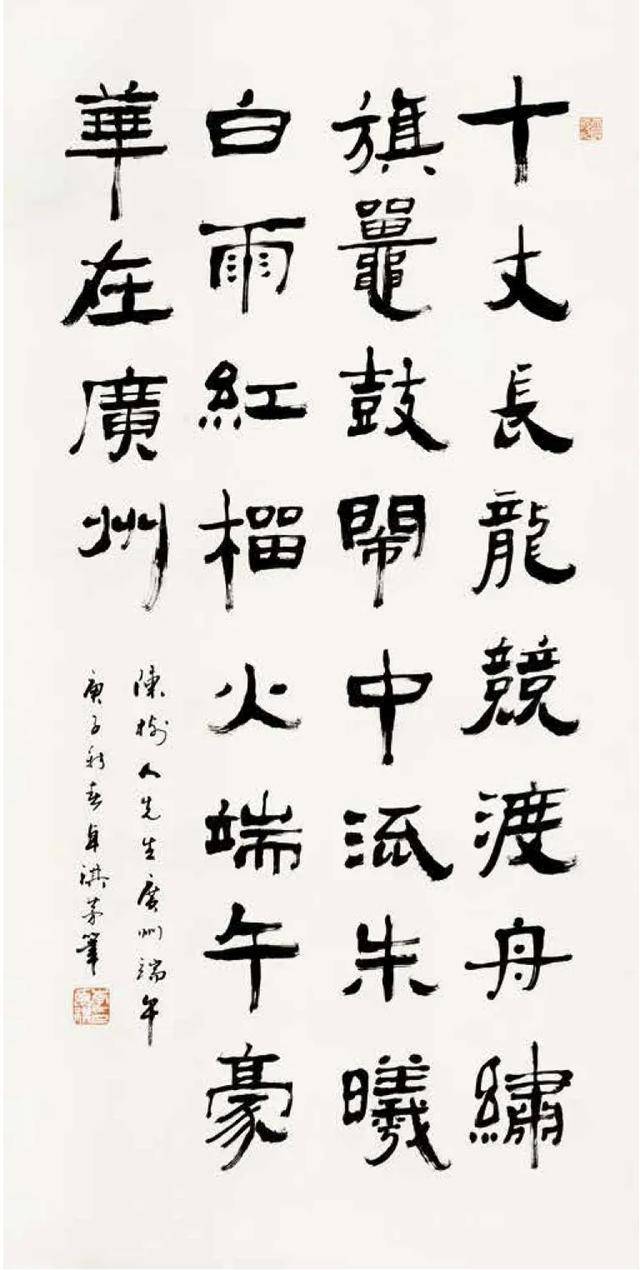 十丈長龍競渡舟繡
旗鼉鼓鬧中流朱曦
白雨紅榴火端午豪
華在廣州
陳樹人先生廣州端午
庚子新春卓琪茅筆